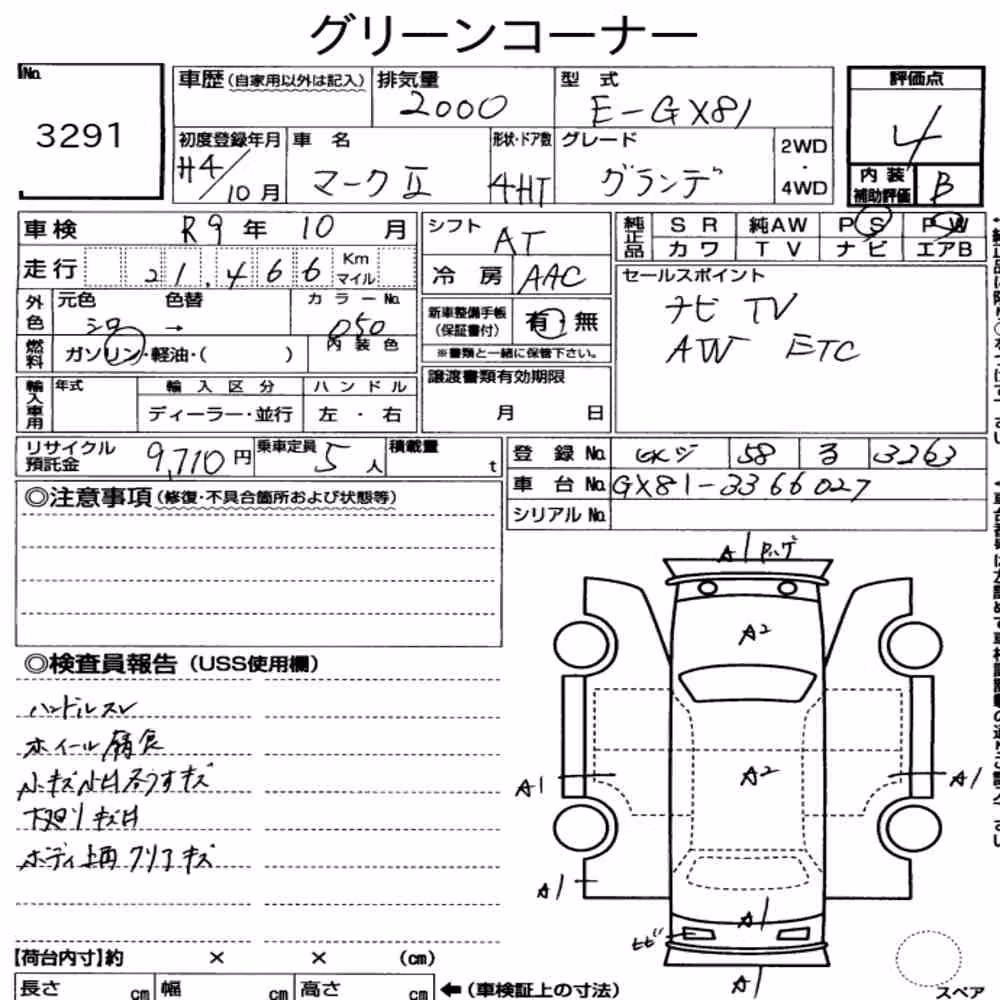 グリーンコーナー
No.
3291
車歴 (自家用以外は記入)
排気量
2000
型 式
E-GX81
評価点
4
初度登録年月
H4/10月
車 名
マークⅡ
形状・ドア数
4HT
グレード
グランデ
2WD
・
4WD
内 装
補助評価
B
車検 R9年 10 月
走行 21,466 Km
マイル
外色
元色 色替
シロ →
カラーNo.
050
内装色
燃料
ガソリン・軽油・( )
輸入車用
年式
輸入区分
ディーラー・並行
ハンドル
左 ・ 右
シフト
AT
冷 房
AAC
新車整備手帳
(保証書付)
有・無
※書類と一緒に保管下さい。
譲渡書類有効期限
月 日
純正品
SR 純AW PS PW
カワ TV ナビ エアB
セールスポイント
ナビ TV
AW ETC
リサイクル
預託金
9,710円
乗車定員
5人
積載量
t
登 録 No. 58 る 3263
車 台 No. GX81-3366027
シリアル No.
◎注意事項(修復・不具合箇所および状態等)
◎検査員報告(USS使用欄)
ハンドルスレ
ホイール腐食
小キズ
下廻りキズ
ボディ上面クリアキズ
A1
A2
A2
A1
A1
A1
A1
ヒビ
A1
スペア
【荷台内寸】約 × × (cm)
長さ cm 幅 cm 高さ cm ←(車検証上の寸法)